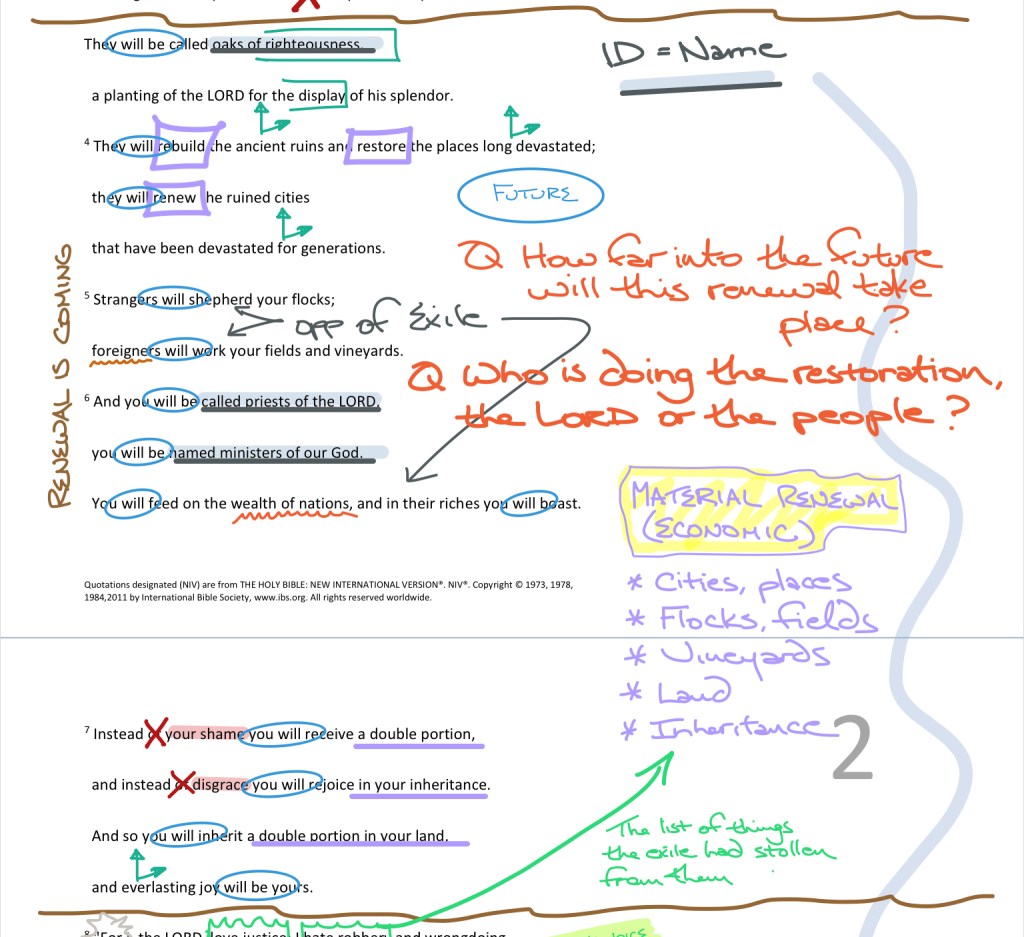 They will be called oaks of righteousness,
ID = Name
a planting of the LORD for the display of his splendor.
4 They will rebuild the ancient ruins and restore the places long devastated;
they will renew the ruined cities
FUTURE
that have been devastated for generations.
Q How far into the future
will this renewal take
place?
RENEWAL IS COMING
5 Strangers will shepherd your flocks;
opp of Exile
foreigners will work your fields and vineyards.
Q Who is doing the restoration,
the LORD or the people?
6 And you will be called priests of the LORD,
you will be named ministers of our God.
You will feed on the wealth of nations, and in their riches you will boast.
MATERIAL RENEWAL
(ECONOMIC)
* Cities, places
* Flocks, fields
* Vineyards
* Land
* Inheritance
Quotations designated (NIV) are from THE HOLY BIBLE: NEW INTERNATIONAL VERSION®. NIV®. Copyright © 1973, 1978,
1984,2011 by International Bible Society, www.ibs.org. All rights reserved worldwide.
2
7 Instead of your shame you will receive a double portion,
and instead of disgrace you will rejoice in your inheritance.
The list of things
the exile had stollen
from them
And so you will inherit a double portion in your land,
and everlasting joy will be yours.
8 "For the LORD, love justice; I hate robbery and wrongdoing